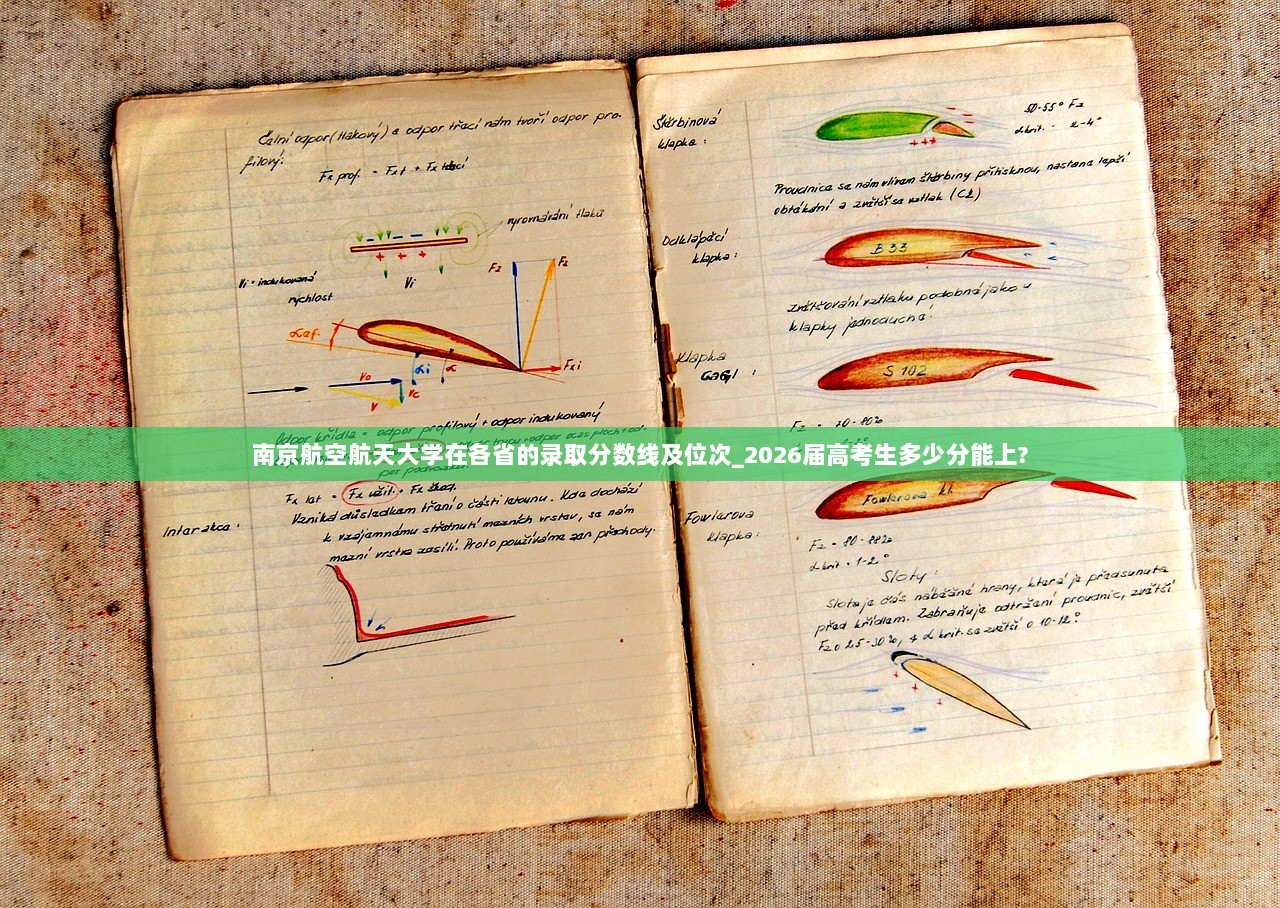 Čelní odpor (tlakový) a odpor třecí nám tvoří odpor pro-
filový:
Fx prof. = Fx t + Fx třecí
vyrovnávání tlaků
Vi = indukovaná
rychlost
Vi
Fz
Fz
αef.
αi
α
Fx i
vo
vc
v
Odpor křídla = odpor profilový + odpor indukovaný
南京航空航天大学在各省的录取分数线及位次_2026届高考生多少分能上?
Fx let = Fx užit. + Fx škod.
Interakce:
Vzniká důsledkem tření o části letounu. Kde dochází
k vzájemnámu střetnutí mezních vrstev, se nám
mezní vrstva zesílí. Proto používáme zan přechody.
Štěrbinová
klapka:
50-55° Fz
αkrit. 2-4°
Proudnice se nám vlivem štěrbiny přitisknou, nastane lepší
obtékání a zvětší se vztlak (CZ)
Odklápěcí
klapka:
B 33
zvětšování vztlaku podobná jako u
klapky jednoduché.
Klapka
GaGl :
S 102
Fz = 70-80%
Fowlerova
klapka:
Fowlerova kl.
Fz = 80-88%
αkrit = 1-2°
Sloty:
Slot je část náběžné hrany, která je předsunuta
před křídlem. Zabraňuje odtržení proudnic, zvětší
Fz o 25-30%, a α krit. se zvětší o 10-12°